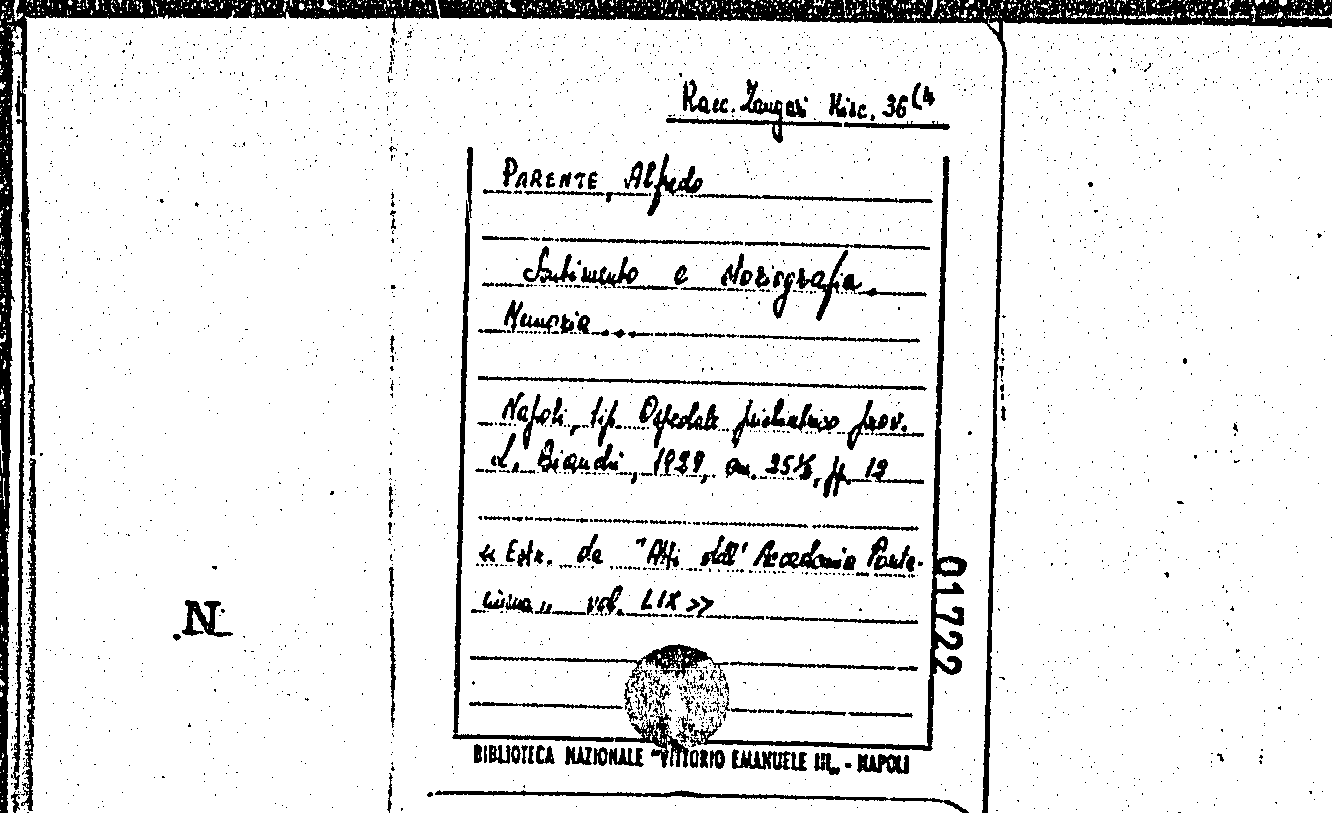 Racc. Zangari Misc. 36(4
PARENTE, Alfredo
Sentimento e storiografia.
Memoria...
Napoli, tip. Ospedale psichiatrico prov.
L. Bianchi, 1929, cm. 25½, pp. 12
« Estr. da "Atti dell' Accademia Ponta-
niana„ vol. LIX »
01722
N
BIBLIOTECA NAZIONALE "VITTORIO EMANUELE III„ - NAPOLI